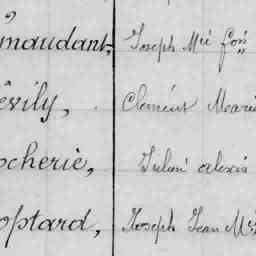 maudant, Joseph Mie fois
évily, Clément Marie
ocherie, Julien alexis
optard, Joseph Jean Mie